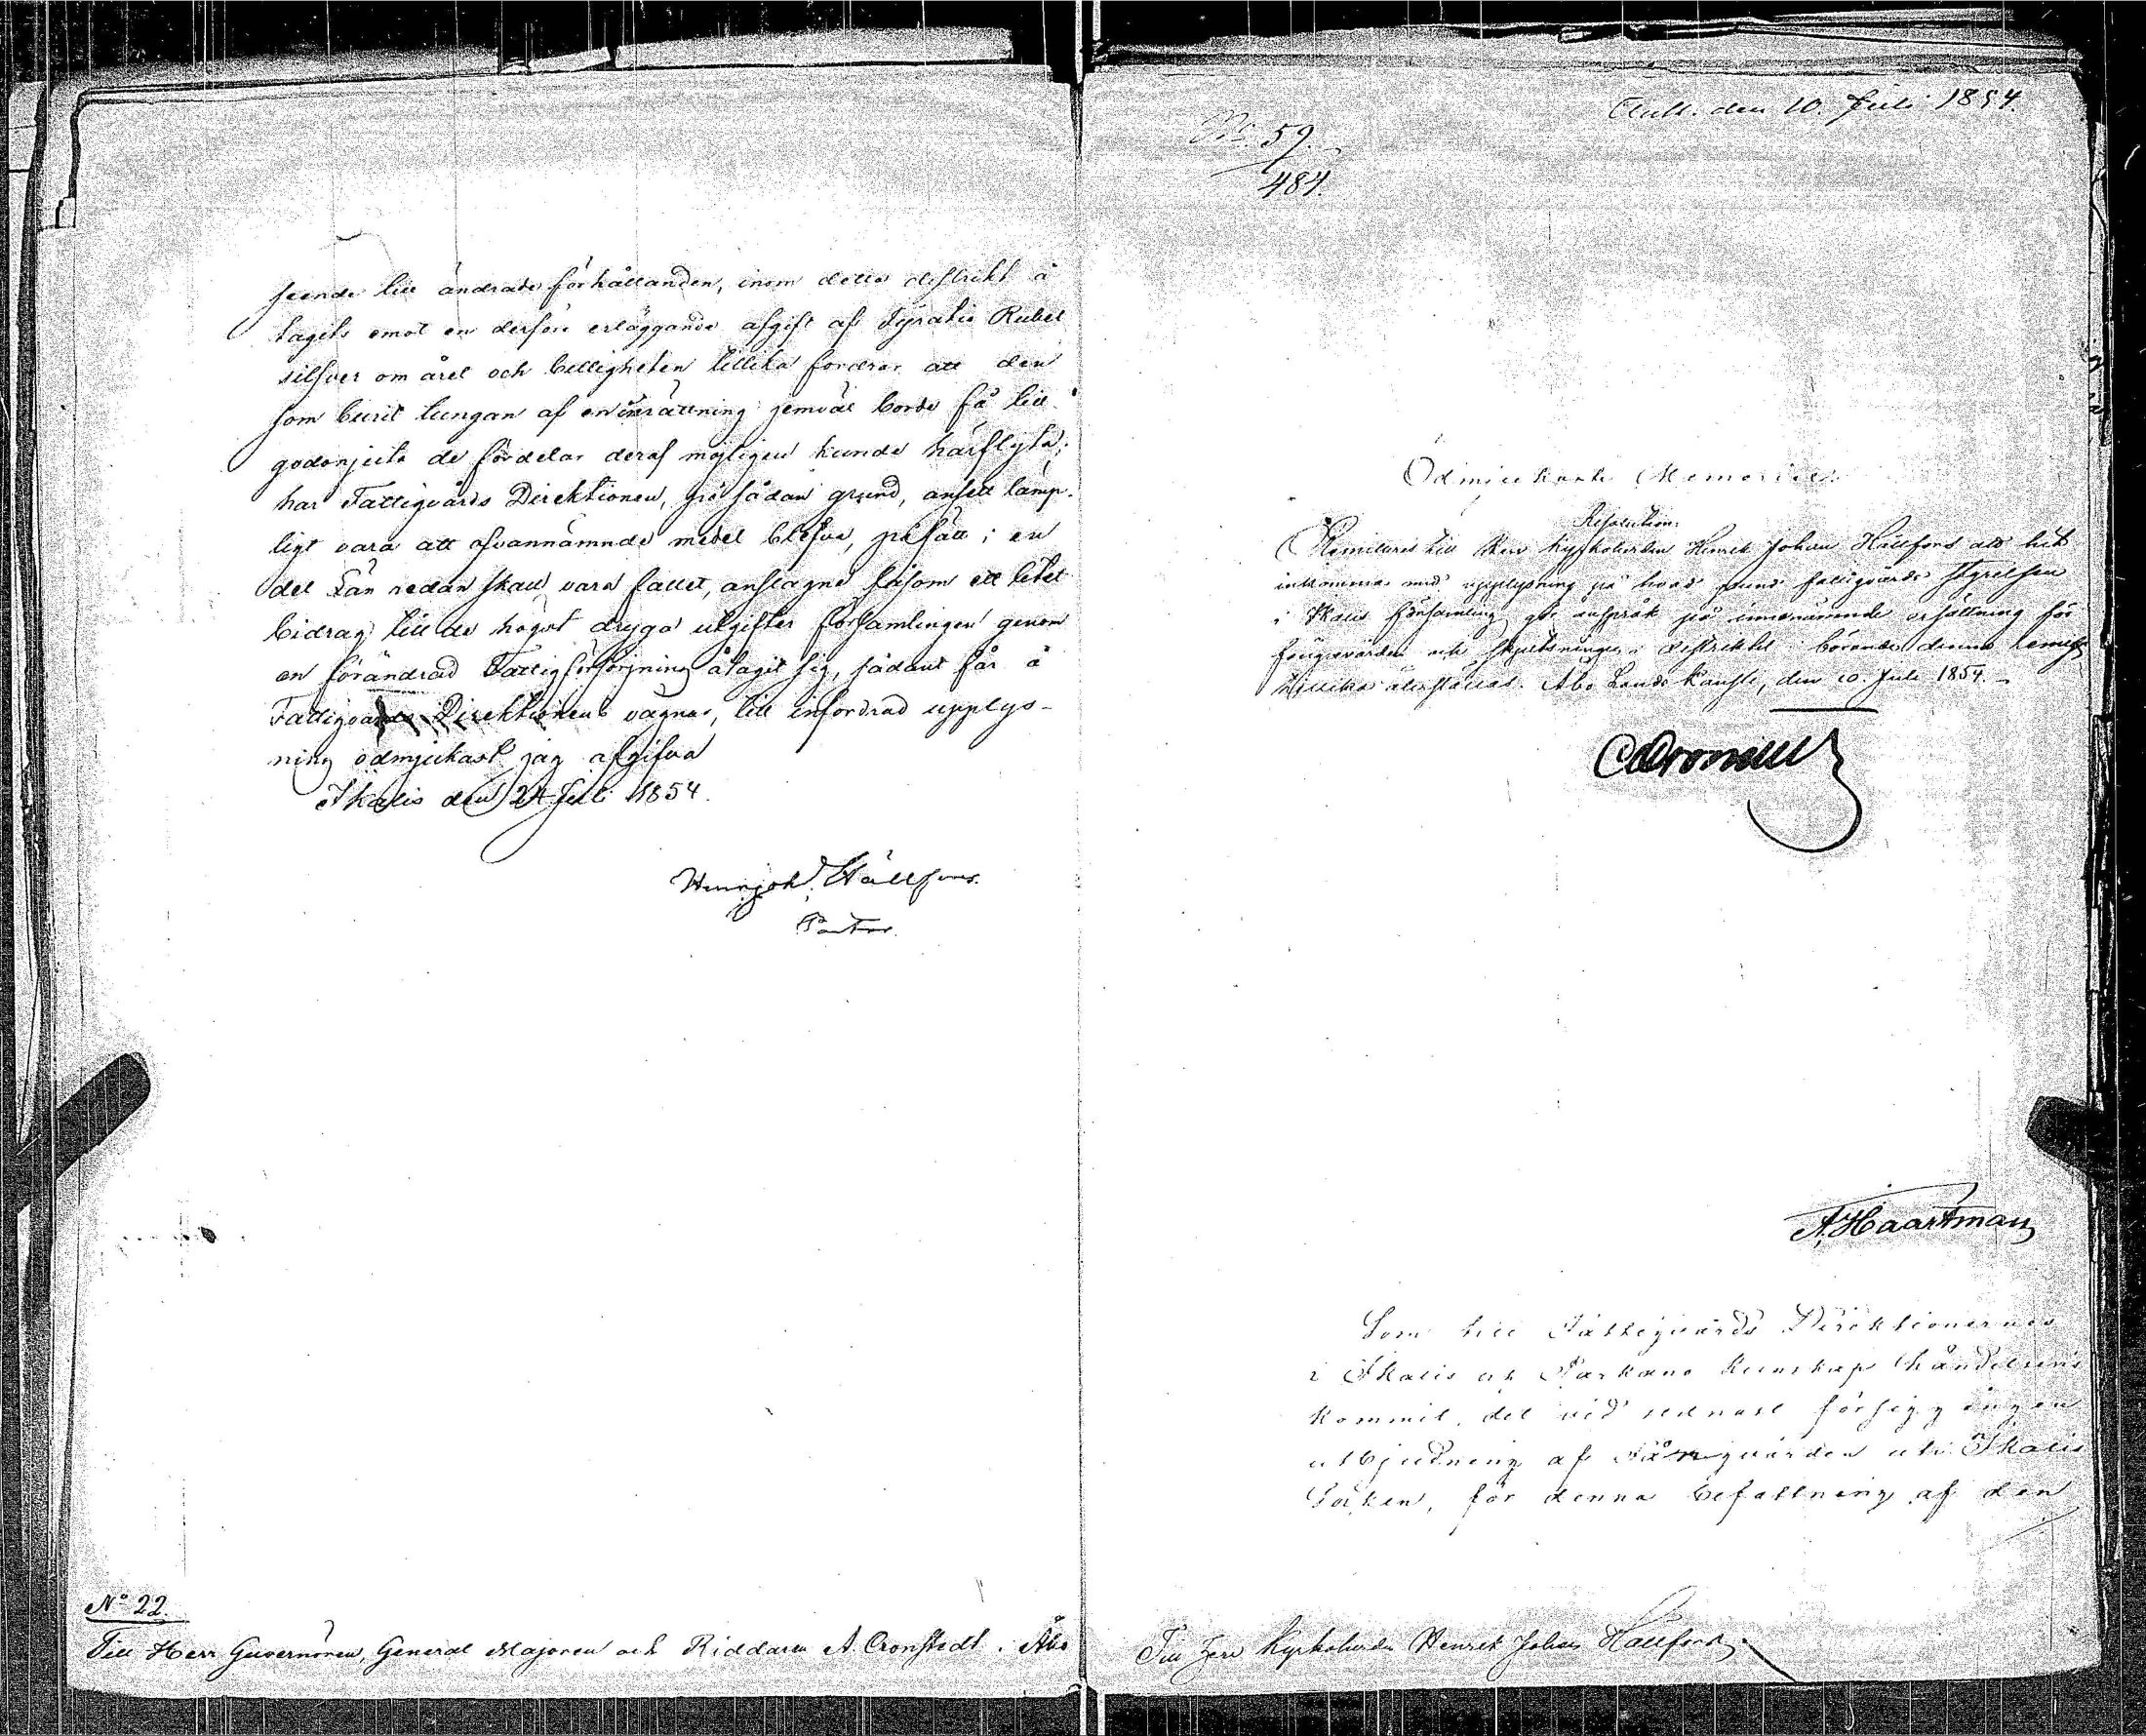 seende till ändrade förhållanden, inom detta distrikt å
tagits emot en derföre erläggande afgift af Fyratio Rubel
silfver om året och billigheten tillika fordrar att den
som burit tungan af en inrättning jemväl borde få till
godonjuta de fördelar deraf möjligen kunde härflyta;
har Fattigvårds Direktionen, på sådan grund, ansett lämp-
ligt vara att ofvannämnde medel blefve, på sätt i en
del Län redan skall vara fallet, anslagne såsom ett litet
bidrag till de högst dryga utgifter församlingen genom
en förändrad Fattigförsörjning åtagit sig, sådant får å
Fattigvårds Direktionens vägnar, till infordrad upplys-
ning ödmjukast jag afgifva
Ikalis den 24 Juli 1854.
Henr. Joh. Hällfors.
Pastor.
No 22.
Till Herr Guvernören, General Majoren och Riddaren A. Cronstedt. Åbo
Ank. den 10. Juli 1854.
No. 59.
484.
Ödmjukaste Memorial.
Resolution.
Remitteras till Herr Kyrkoherden Henrik Johan Hällfors att hit
inkomma med upplysning på hvad grund fattigvårds styrelsen
i Ikalis församling gör anspråk på omnämnde ersättning för
fångvården och skjutsningen i distriktet; börande denna remiss
tillika återställas. Åbo Lands Kansli, den 10. Juli 1854.
A. Haartman
Som till Fattigvårds Direktionernas
i Ikalis och Parkano kunskap händelsevis
kommit, det vid sednast försiggången
utbjudning af Fångvården uti Ikalis
Socken, för denna befattning af den
Till Herr Kyrkoherden Henrik Johan Hällfors.